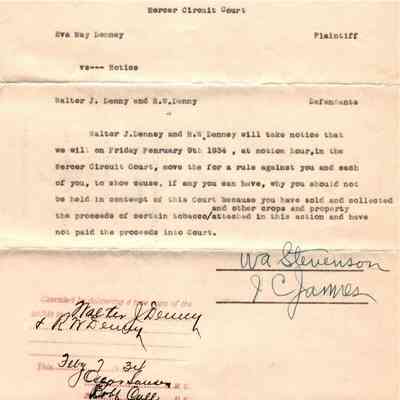 Mercer Circuit Court
Eva May Denney Plaintiff
vs--- Notice
Walter J. Denny and R.W.Denny Defendants
Walter J.Denney and R.W.Denney will take notice that
we will on Friday Fenruary 9th 1934 , at motion hour,in the
Mercer Circuit Court, move the for a rule against you and each
of you, to show cause, if any you can have, why you should not
be held in contempt of this Court because you have sold and collected
and other crops and property
the proceeds of certain tobacco/attached in this action and have
not paid the proceeds into Court.
WA Stevenson
J C James
delivering a true copy of the
Walter J Denny
& R W Denny
This Feby 7 34